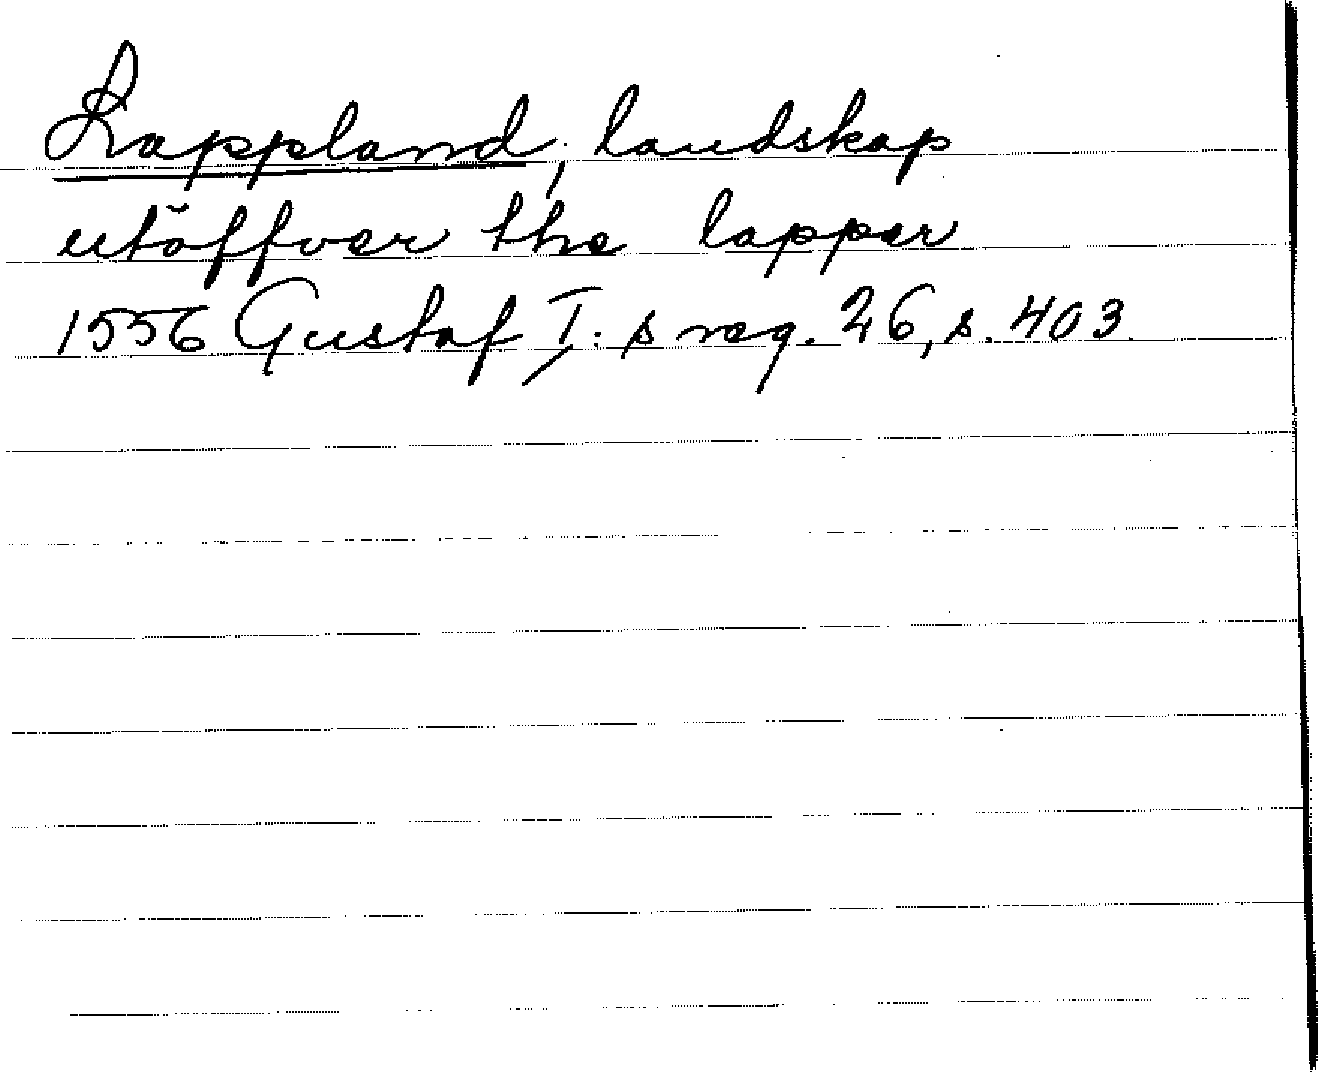 Lappland, landskap
utöffver the lapper
1556 Gustaf I:s reg. 26, s. 403.